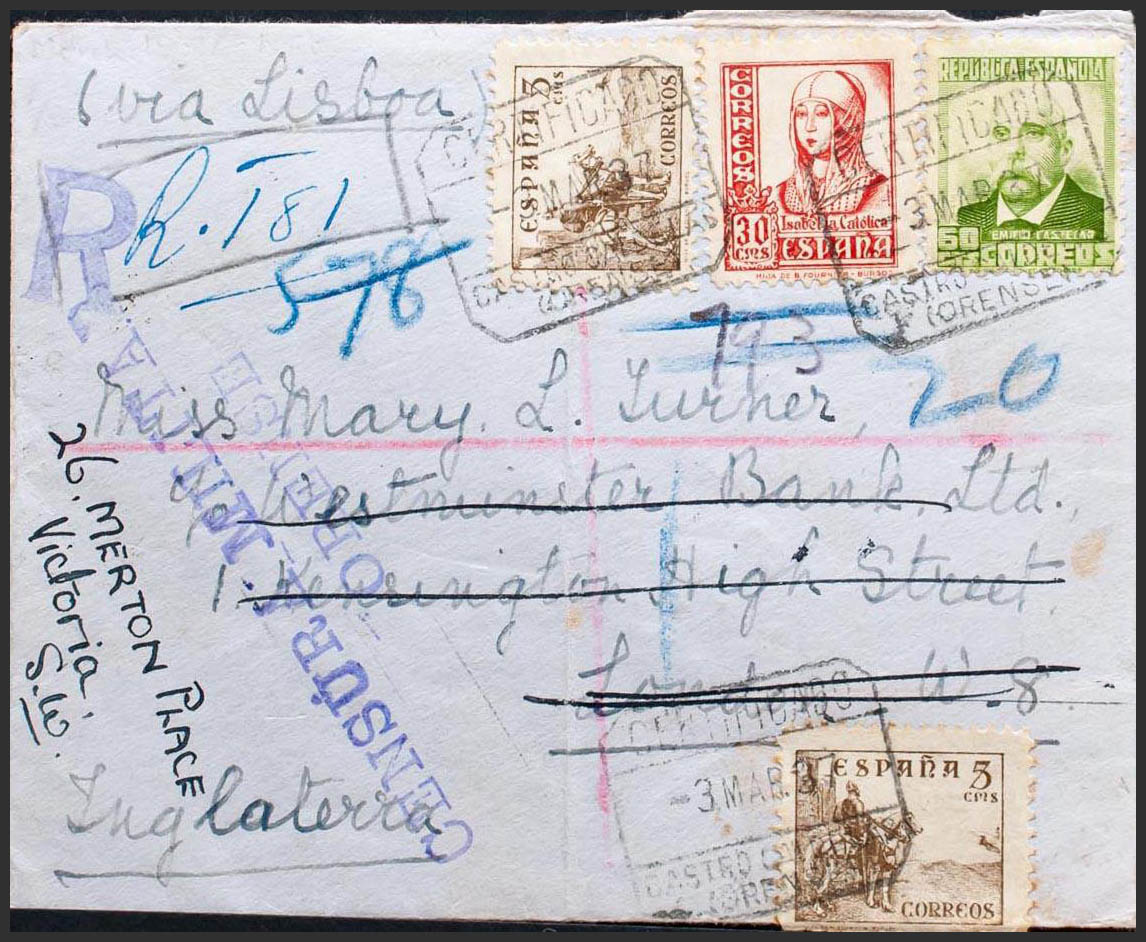 (via Lisboa)
R
R. T81
578
ESPAÑA 5 cms CORREOS
CORREOS
30 cms
Isabel la Católica
ESPAÑA
HIJA DE B. FOURNIER - BURGOS
REPÚBLICA ESPAÑOLA
EMILIO CASTELAR
60 cts CORREOS
CERTIFICADO
MAR. 37
CERTIFICADO
-3 MAR. 37
CASTRO
(ORENSE)
193
20
Miss Mary. L. Turner,
c/o Westminster Bank, Ltd.,
1. Kensington High Street.
London W. 8.
Inglaterra
26. MERTON PLACE
Victoria.
S.W.
CENSURA MILITAR
ORENSE
CERTIFICADO
-3 MAR. 37
CASTRO
(ORENSE)
ESPAÑA 5
cms
CORREOS